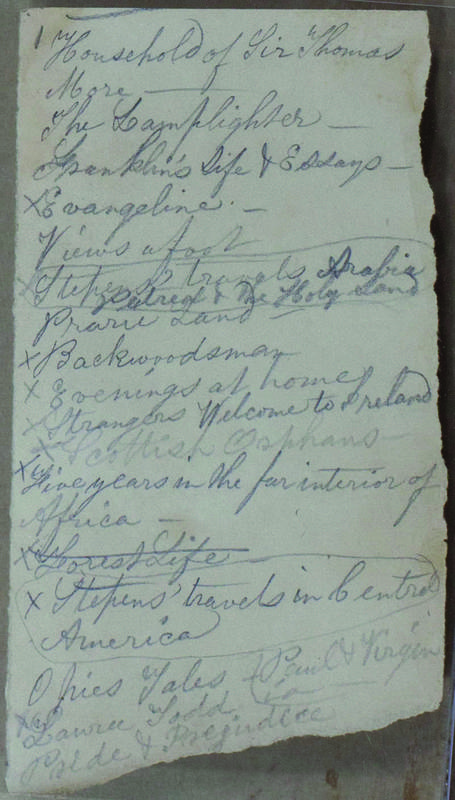 1 Household of Sir Thomas
More —
The Lamplighter —
Franklin's Life & Essays —
x Evangeline. —
Views afoot
x Stepens' travels Arabia
Patrea & The Holy Land
Prarie Land
x Backwoodsman
x Evenings at home
x Strangers Welcome to Ireland
x Scottish Orphans —
x Five years in the far interior of
Africa —
x Forest Life —
x Stepens' travels in Central
America
Opies Tales + Paul & Virgin
ia
x Laura Todd
Pride & Prejudice